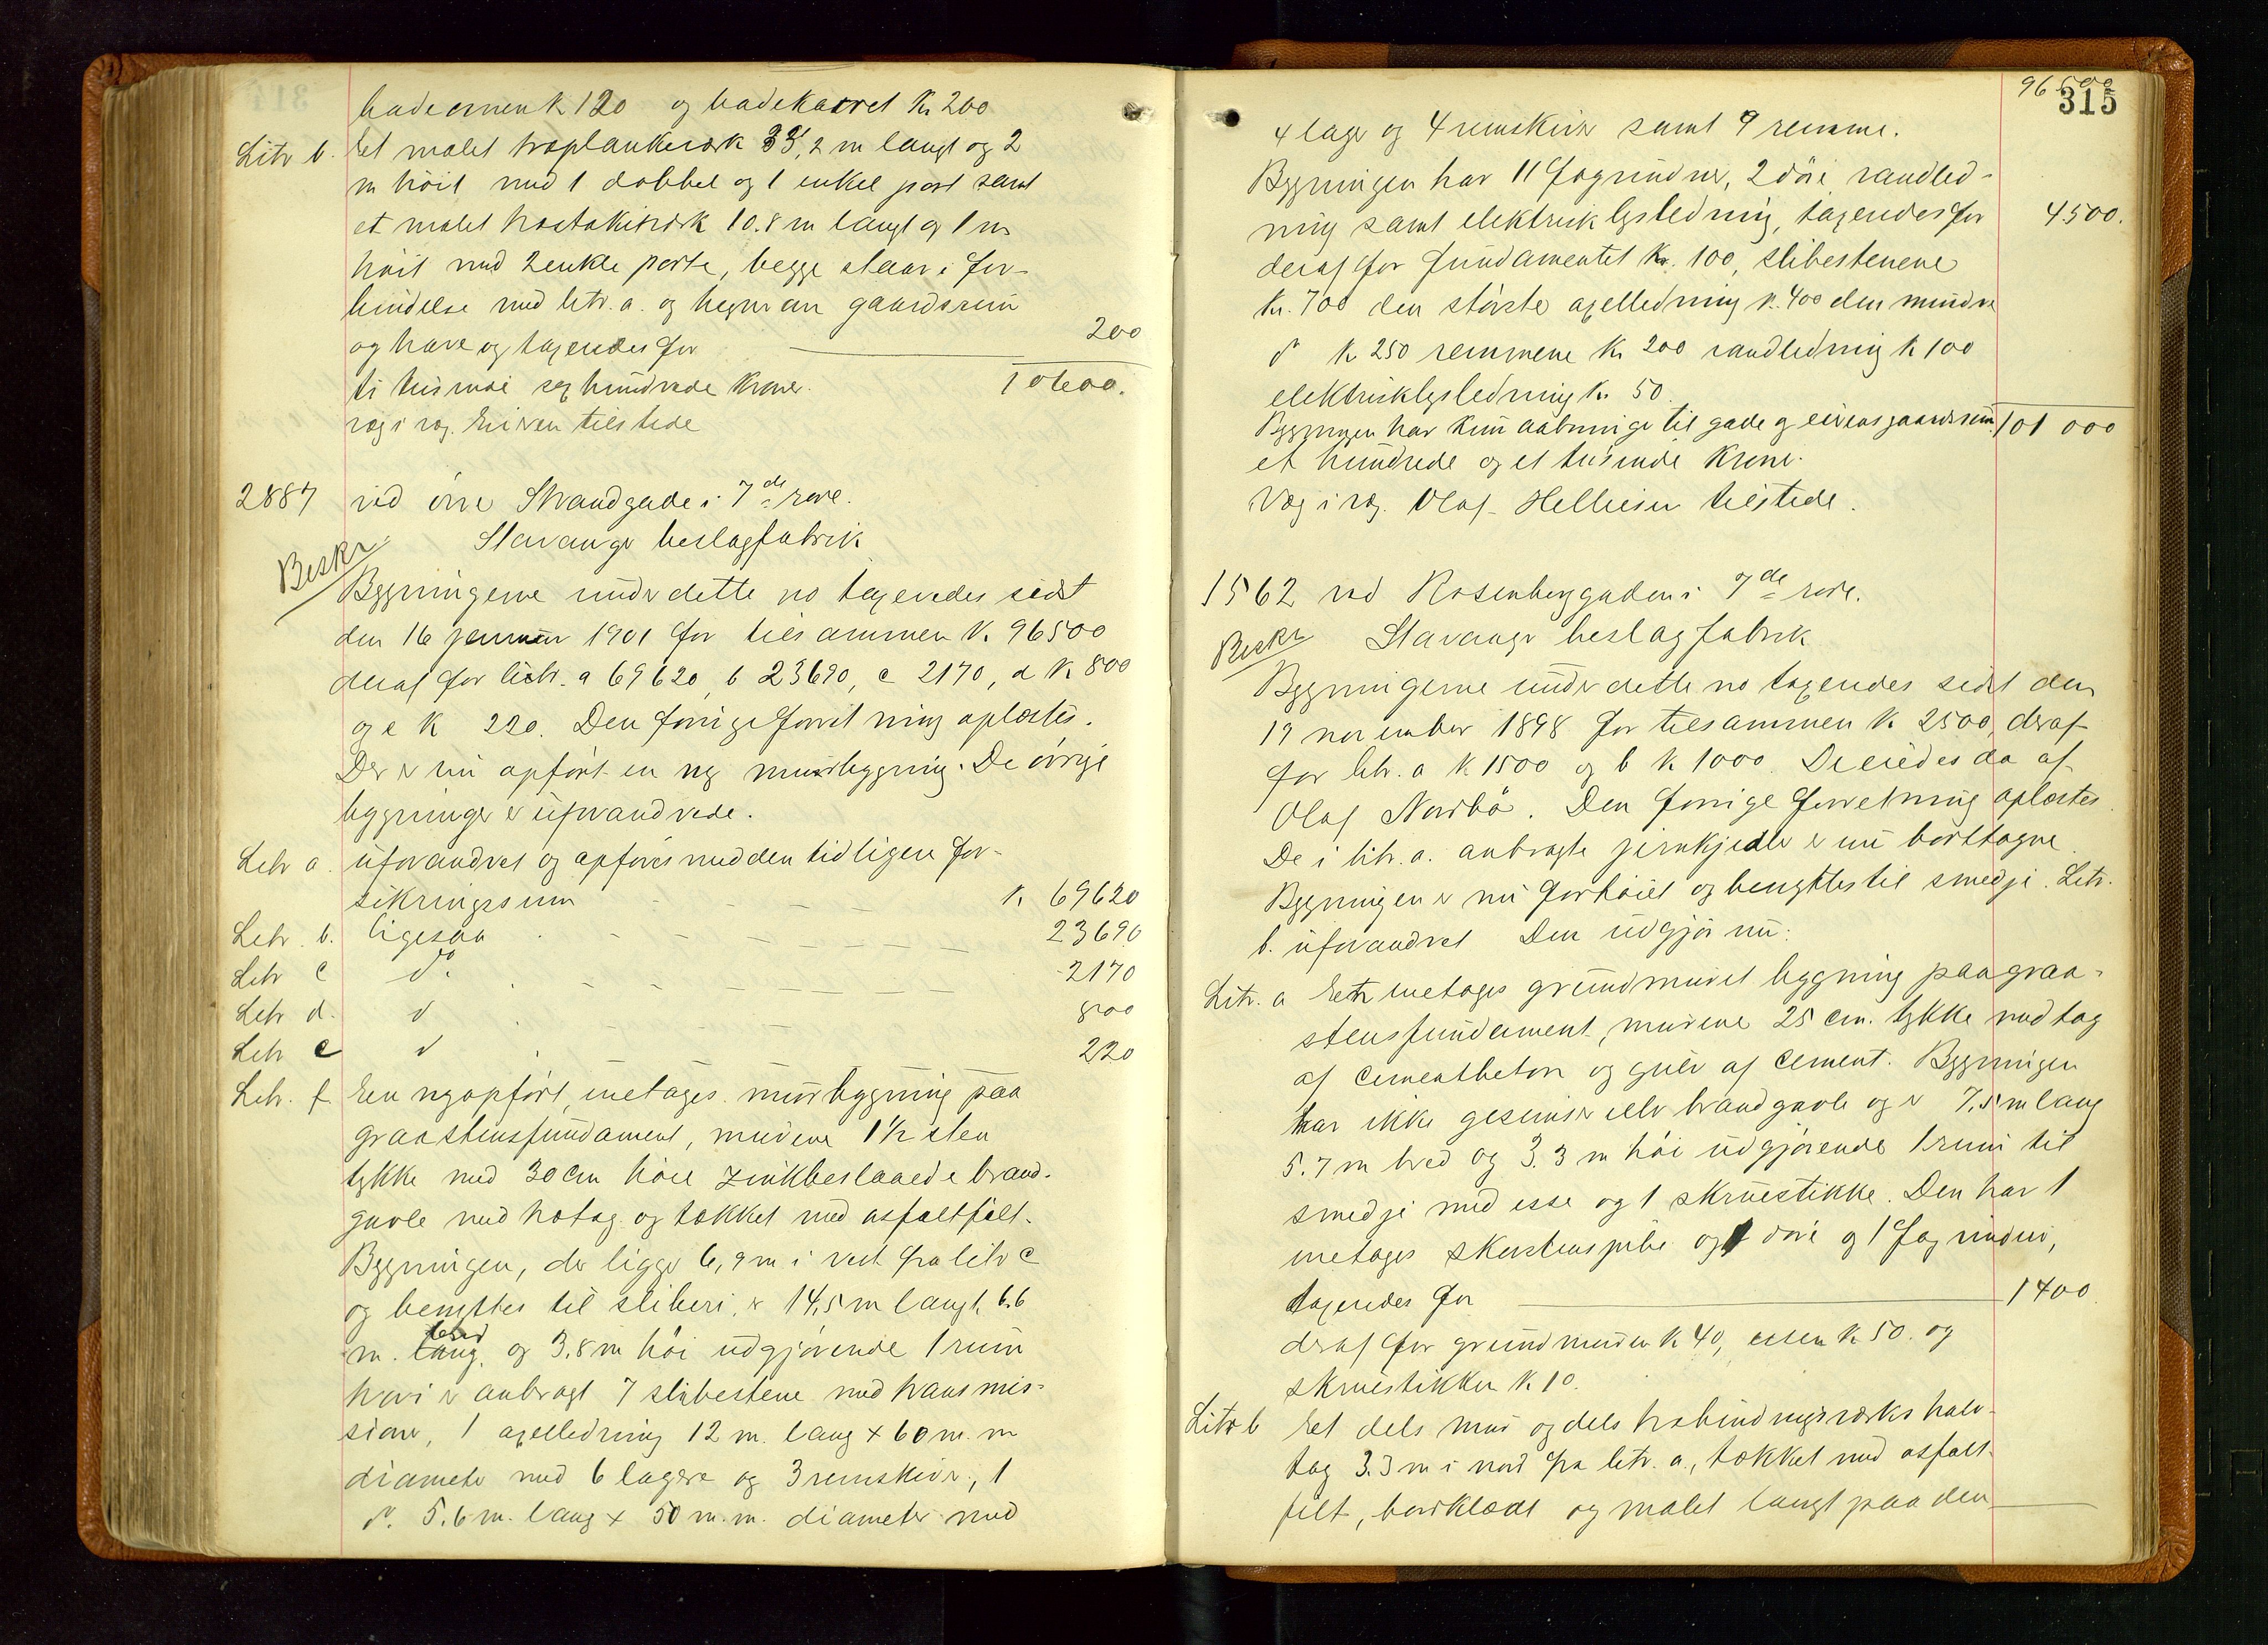 badeovnen k 120 og badekarret Kr 200
Litr b. Et malet træplankeværk 33,2 m langt og 2
m höit med 1 dobbel og 1 enkel port samt
et malet træstakitværk 10.8 m langt og 1 m
höit med 2 enkle porte, begge staar i for-
bindelse med litr. a. og hegner om gaardsrum
og have og taxeredes for 200
ti tusinde sex hundrede Kroner. 10600.
væg i væg. Eieren tilstede
2887 ved övre Strandgade i 7de rode.
Stavanger beslagfabrik
Beskr
Bygningerne under dette no taxeredes sidst
den 16 januar 1901 for tilsammen K. 96500
deraf for litr. a 69620, b 23690, c 2170, d K 800
og e K 220. Den forrige forretning oplæstes.
Der er nu opfört en ny murbygning. De övrige
bygninger er uforandrede.
Litr a. uforandret og opföres med den tidligere for-
sikringssum K. 69620
Litr. b. ligesaa 23690
Litr c do. 2170
Litr d. do 800
Litr e do 220
Litr. f. En nyopfört, enetages murbygning paa
graastensfundament, murene 1 1/2 sten
tykke med 30 cm höie zinkbeslaaede brand-
gavle med trætag og tækket med asfaltfilt.
Bygningen, der ligger 6,9 m i vest fra litr c
og benyttes til sliberi, er 14,5 m langt, 6.6
m. lang bred og 3.8 m höi udgjörende 1 rum
hvori er anbragt 7 slibestene med transmis-
sioner, 1 axelledning 12 m. lang x 60 m.m
diameter med 6 lagere og 3 remskiver, 1
do. 5.6 m. lang x 50 m.m. diameter med
96500
315
4 lager og 4 remskiver samt 9 remme.
Bygningen har 11 fag vinduer, 2 döre, vandled-
ning samt elektrisk lysledning, taxeredes for 4500.
deraf for fundamentet Kr. 100, slibestenene
Kr. 700 den störste axelledning K. 400 den mindre
do K 250 remmene Kr 200 vandledning K 100
elektrisklysledning Kr 50.
Bygningen har kun aabninger til gade og eierens gaardsrum. 101 000
et hundrede og et tusinde Kroner.
Væg i væg. Olaf Helliesen tilstede.
1562 ved Rosenberggaden i 7de rode.
Beskr Stavanger beslagfabrik
Bygningerne under dette no taxeredes sidst den
19 november 1898 for tilsammen K. 2500, deraf
for litr. a K 1500 og b K 1000. De eiedes da af
Olaf Norbö. Den forrige forretning oplæstes.
De i litr. a. anbragte jernkjedler er nu borttagne.
Bygningen er nu forhöiet og benyttes til smedje. Litr.
b. uforandret Den udgjör nu:
Litr. a En enetages grundmuret bygning paa graa-
stensfundament, murene 25 cm. tykke med tag
af cementbeton og gulv af cement. Bygningen
har ikke gesimser eller brandgavle og er 7,5 m lang
5.7 m bred og 3.3 m höi udgjörende 1 rum til
smedje med esse og 1 skruestikke. Den har 1
enetages skorstenspibe og 1 dör og 1 fag vinduer,
taxeredes for 1400
deraf for grundmuren K 40, essen K 50. og
skruestikken K 10.
Litr b Et dels mur og dels træbindingsværks halv-
tag 3.3 m i nord fra litr. a., tækket med asfalt-
filt, bordklædt og malet langt paa den